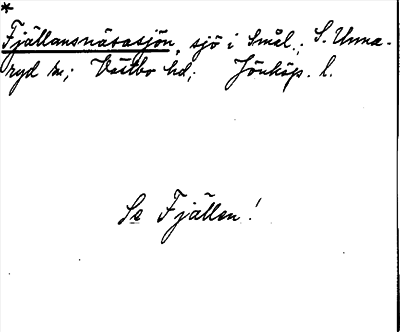 *
Fjällansnäsasjön, sjö i Smål.; S. Unna-
ryd sn; Västbo hd; Jönköp. l.
Se Fjällen!